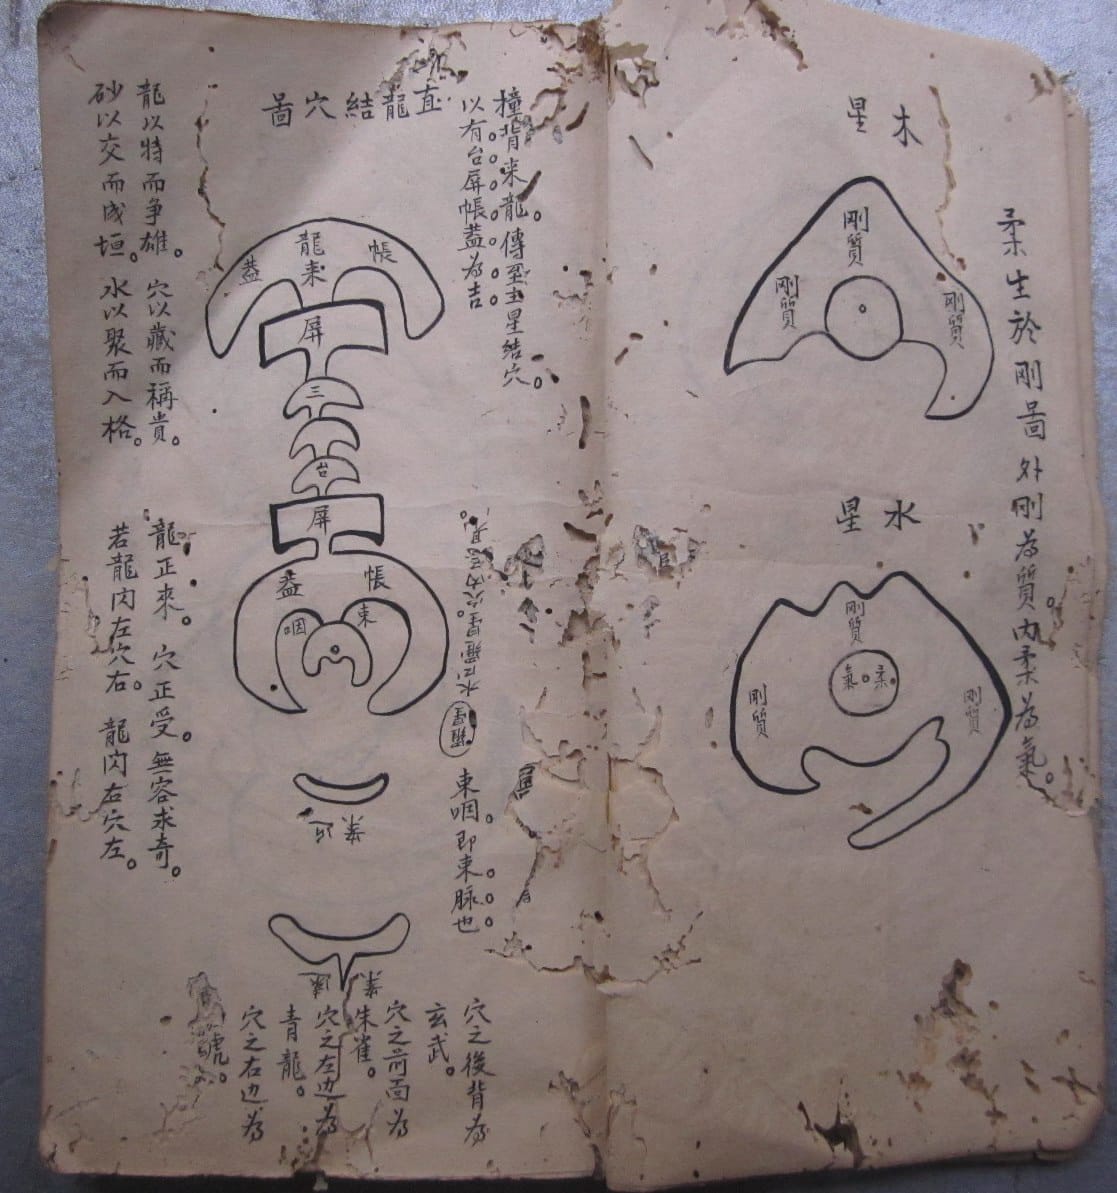 柔生於剛啚 外剛為質。內柔為氣。
木星
剛質
剛質
剛質
水星
剛質
柔氣
剛質
剛質
撞背来龍。傳至主星結穴。
以有台屏帳蓋為吉
直龍結穴啚
帳
龍来
蓋
屏
三
台
屏
帳
蓋
束
咽
羅星
束咽。即束脉也。
近案
案
穴之後背為
玄武。
穴之前面為
朱雀。
穴之左边為
青龍。
穴之右边為
龍以特而争雄。穴以藏而稱貴。
砂以交而成垣。水以聚而入格。
龍正來。穴正受。無容求奇。
若龍閃左穴右。龍閃右穴左。